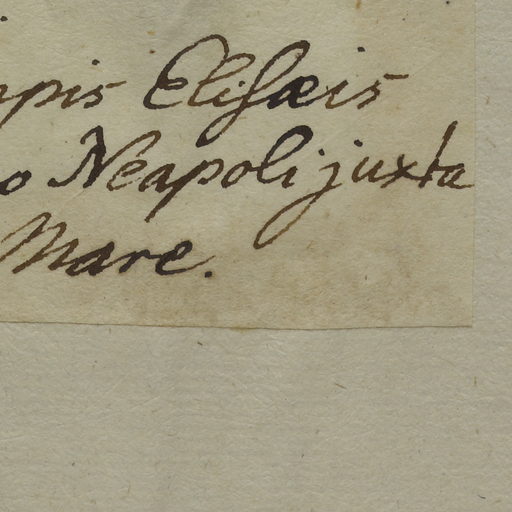 mpis Elisæis
o Neapoli juxta
Mare.